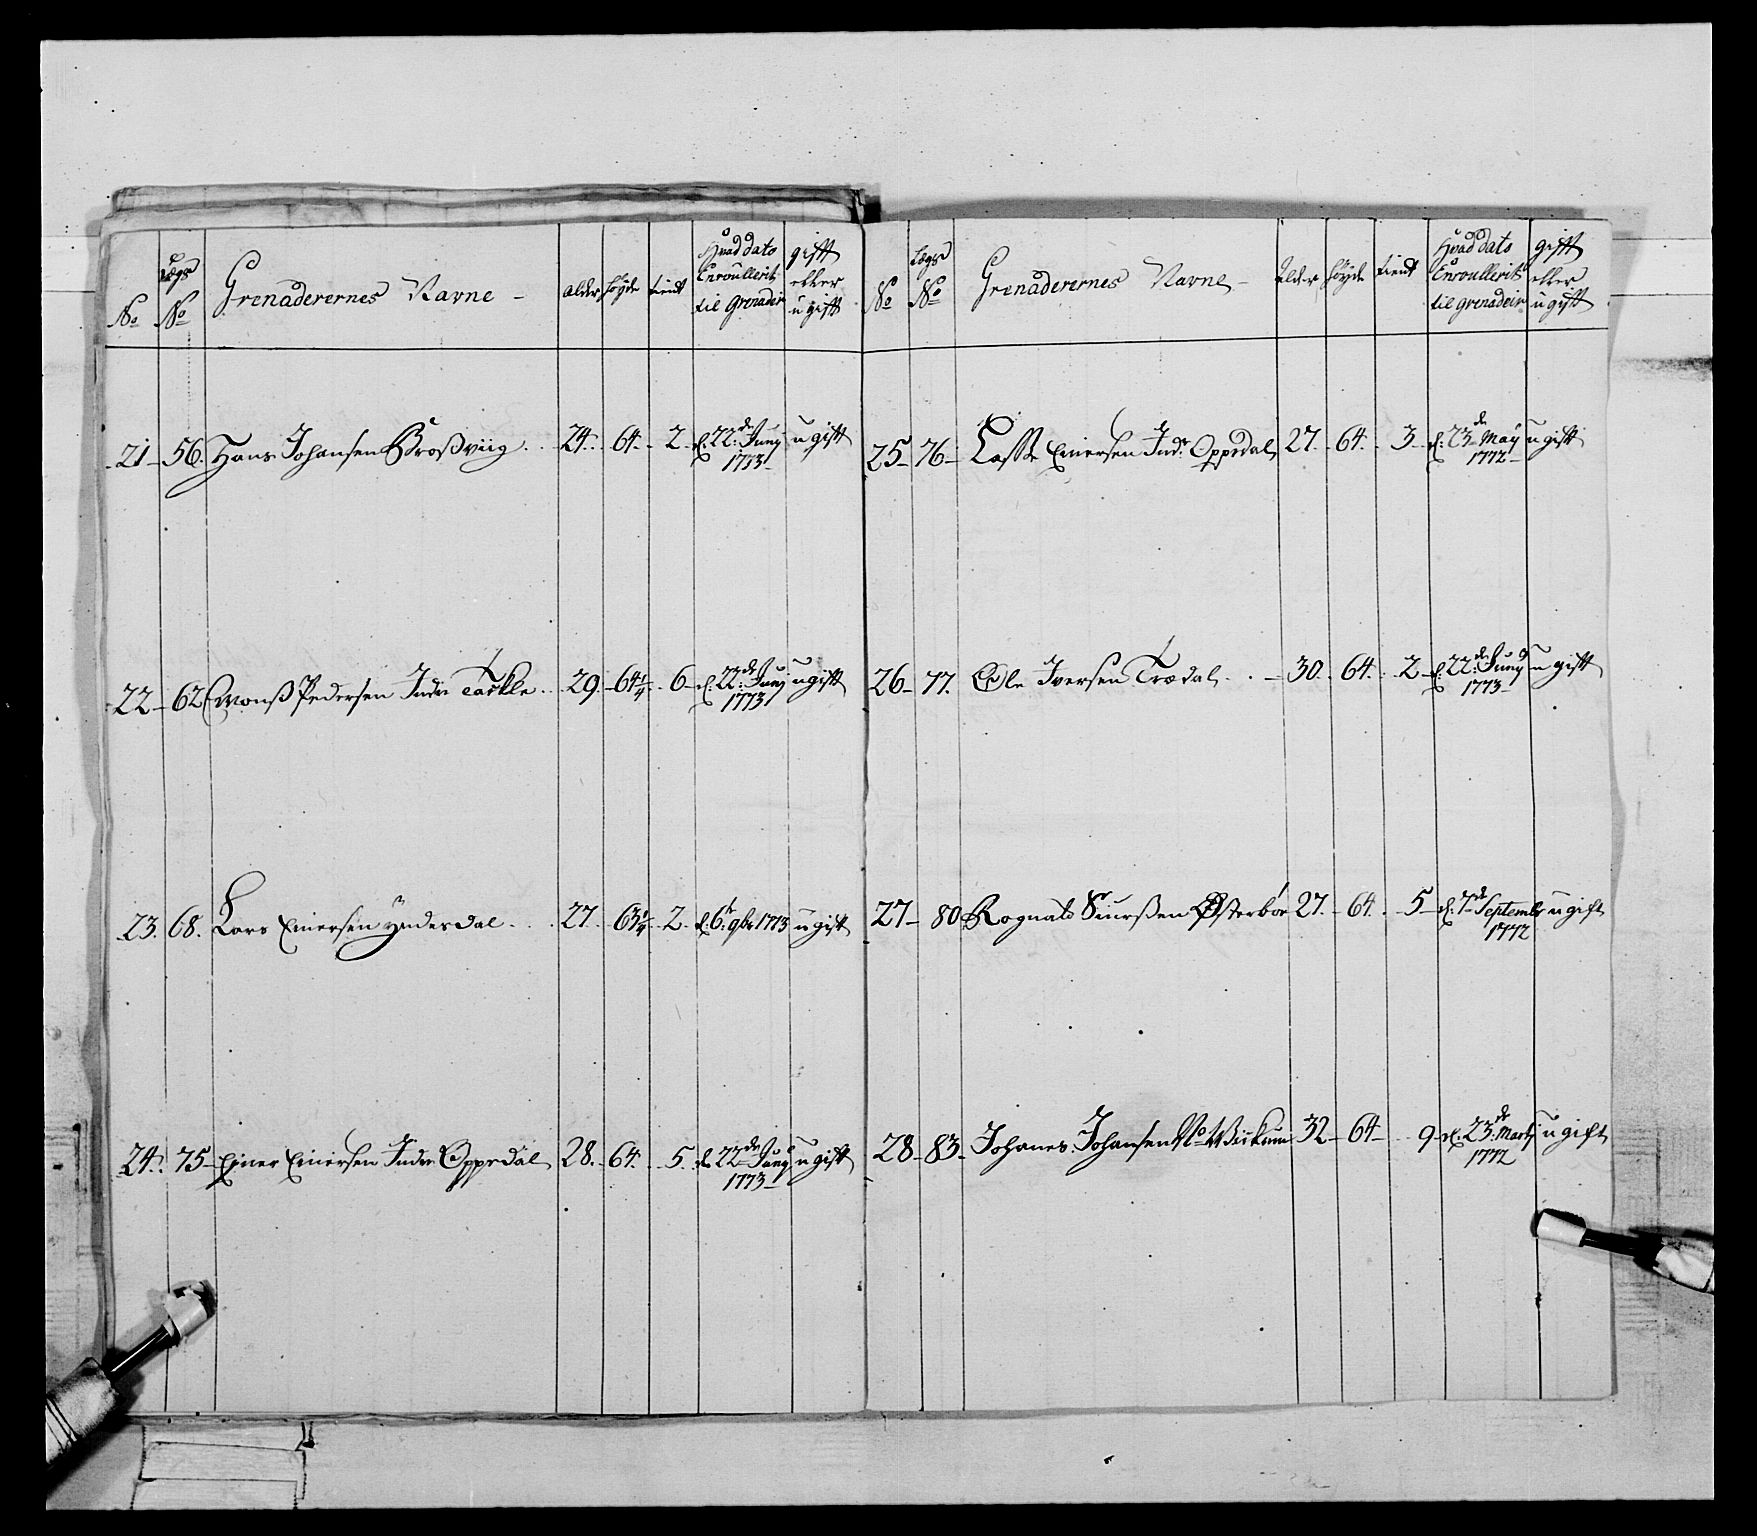 No Lægs No Grenaderernes Navne - Alder Høyde tient Hvad dato Enroullerit til Grenader gifft eller ugifft
21 - 56. Hans Johansen Brossviig . . 24. 64. 2. d: 22de Juny 1773 ugifft
22 - 62 Monss Pedersen Indre Tackle . . 29. 64 1/4 6 - d: 22de Juny 1773 ugifft
23. 68. Lars Einersen Yndesdal . . . 27. 63 1/4 2. d: 6te 9br 1773 ugifft
24. 75 - Einer Einersen Indre Oppedal 28. 64. 5. d. 22de Juny 1773 - ugifft
No Lægs No Grenaderernes Navne - Alder Høyde tient Hvad dato Enroullerit til grenadeir gifft eller ugifft
25 - 76 - Lasse Einersen Indr: Oppedal 27. 64. 3 - d: 23de May 1772 - ugifft
26 - 77. Ole Iversen Trædal . . - 30. 64. 2 - d: 22de Juny 1773 - ugifft
27 - 80 Rognald Siurssen Østerbøe 27. 64. 5 - d: 7de Septembr 1772 ugift
28 - 83 - Johanes Johansen Wiikum 32 - 64 - 9 - d: 23de Marty 1772 ugift